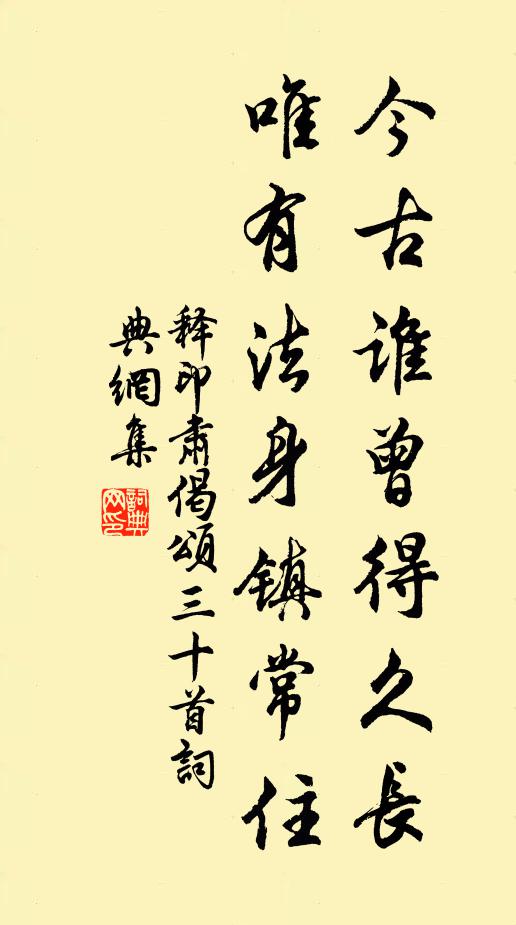 今古谁曾得久長
唯有法身镇常住
释印肃偈頌三十首詞
典網集
詞典网印